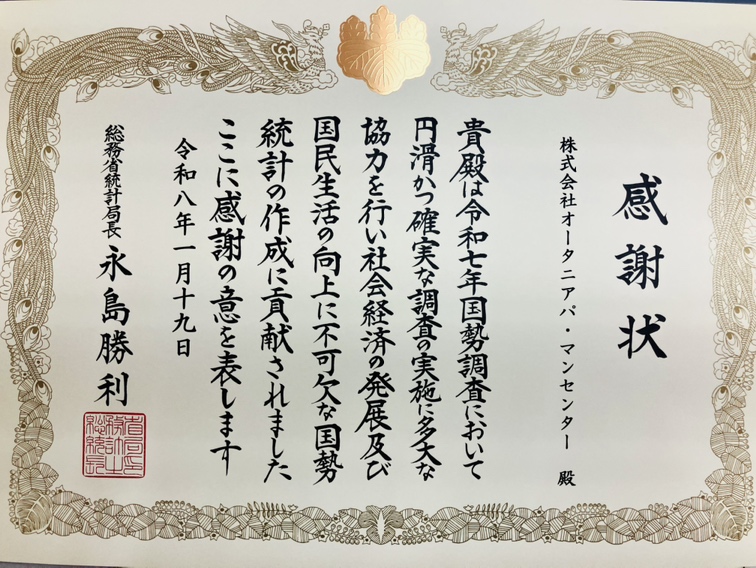 感謝状
株式会社オータニアパ・マンセンター 殿
貴殿は令和七年国勢調査において
円滑かつ確実な調査の実施に多大な
協力を行い社会経済の発展及び
国民生活の向上に不可欠な国勢
統計の作成に貢献されました
ここに感謝の意を表します
令和八年一月十九日
総務省統計局長 永島勝利